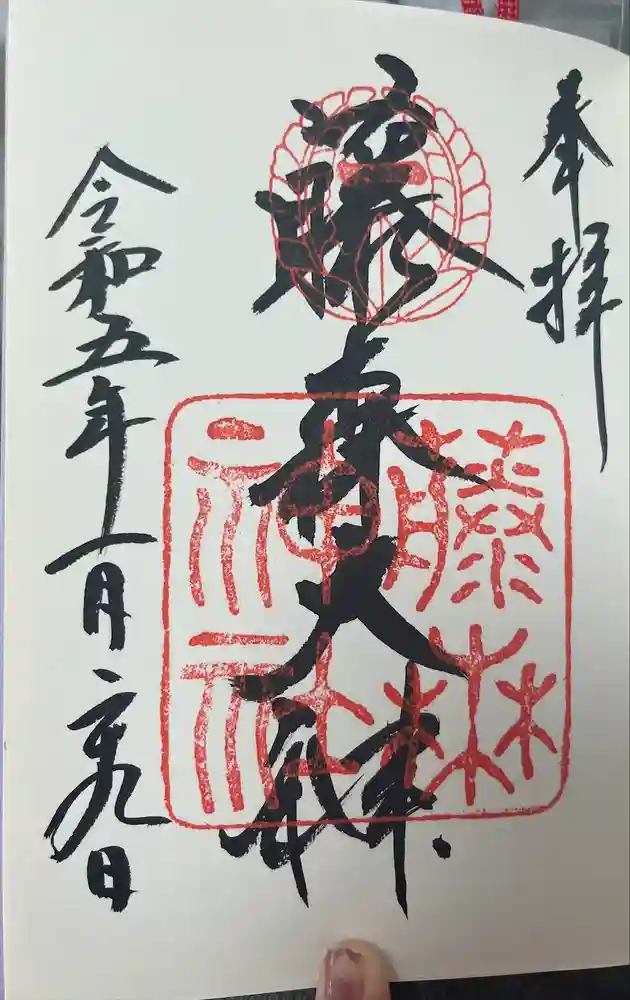 奉拝
藤森大神
藤森神社
令和五年一月二十九日